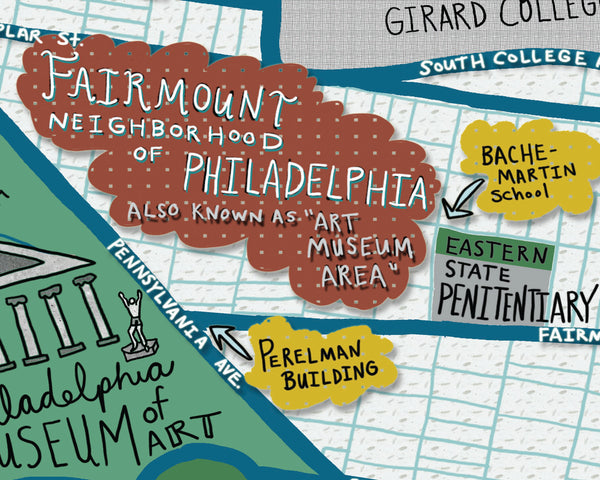 GIRARD COLLEGE
PLAR St.
SOUTH COLLEGE
FAIRMOUNT
NEIGHBORHOOD
OF PHILADELPHIA
ALSO KNOWN AS "ART
MUSEUM
AREA"
BACHE-
MARTIN
School
EASTERN
STATE
PENITENTIARY
FAIRM
PENNSYLVANIA AVE.
PERELMAN
BUILDING
iladelphia
MUSEUM of
ART